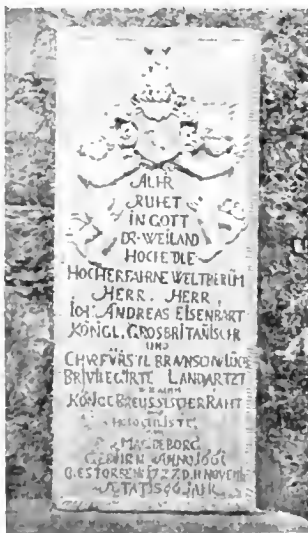 ALHR
RUHET
IN GOTT
DR. WEILAND
HOCHEDLE
HOCHERFAHRNE WELTBERÜM
HERR. HERR
IOH. ANDREAS EISENBART
KÖNIGL. GROSBRITANISCHR
UND
CHURFÜRSTL BRAUNSCHW LÜCB
PRIVILEGIRTE LANDARTZT
KÖNIGL PREUSSISCHER RAHT
MAGDEBORG
GEBOHRN ANNO 1661
GESTORBEN 1727 D. 11 NOVEMB
ÆTATIS 66 JAHR